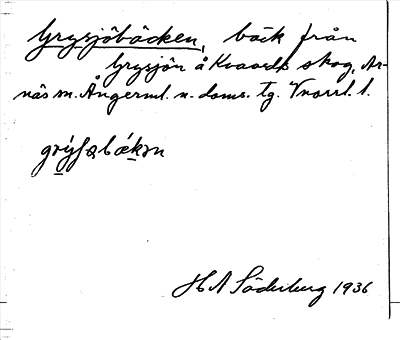 Grysjöbäcken, bäck från
Grysjön å Kvaards skog, Ar-
näs sn. Ångerml. n. doms. tg. Vnorrl. l.
H A Söderberg 1936